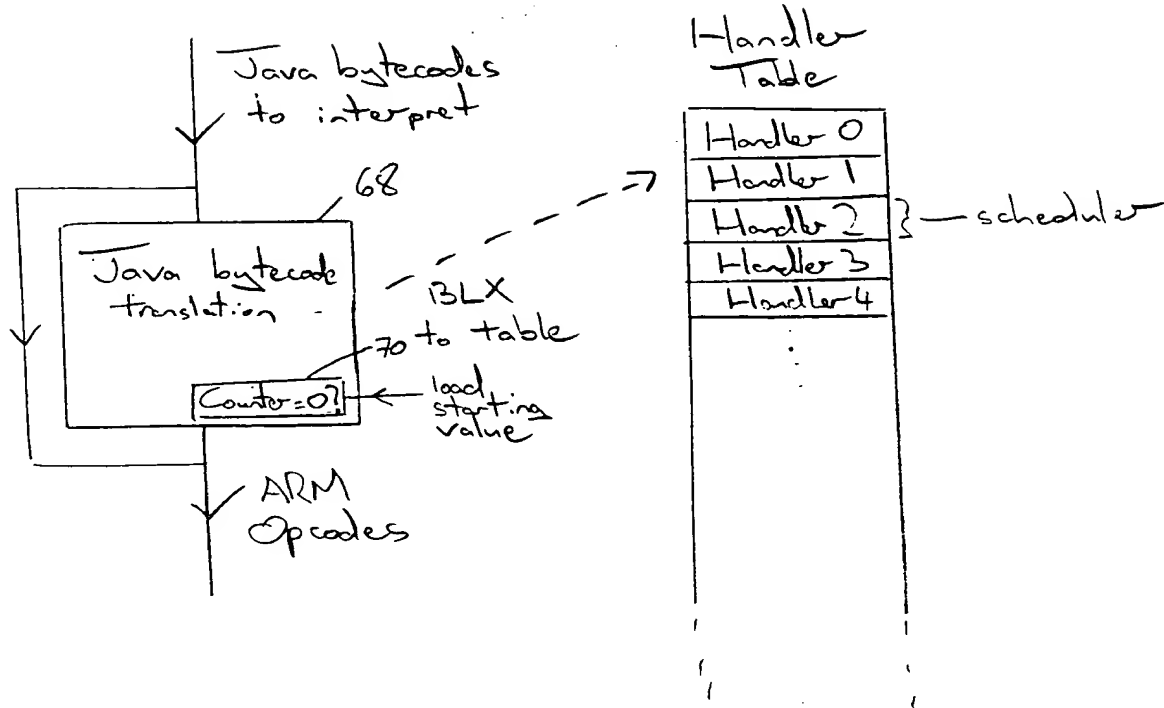 Java bytecodes
to interpret
68
Java bytecode
translation
BLX
to table
70
Counter=0?
load
starting
value
ARM
Opcodes
Handler
Table
Handler 0
Handler 1
Handler 2
scheduler
Handler 3
Handler 4